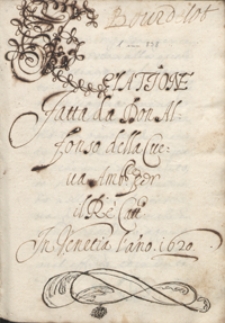 Bourdelot
RELATIONE
fatta da Don Al-
fonso della Cue-
ua Ambr per
il Rè Catt.
In Venetia l'año. 1620.